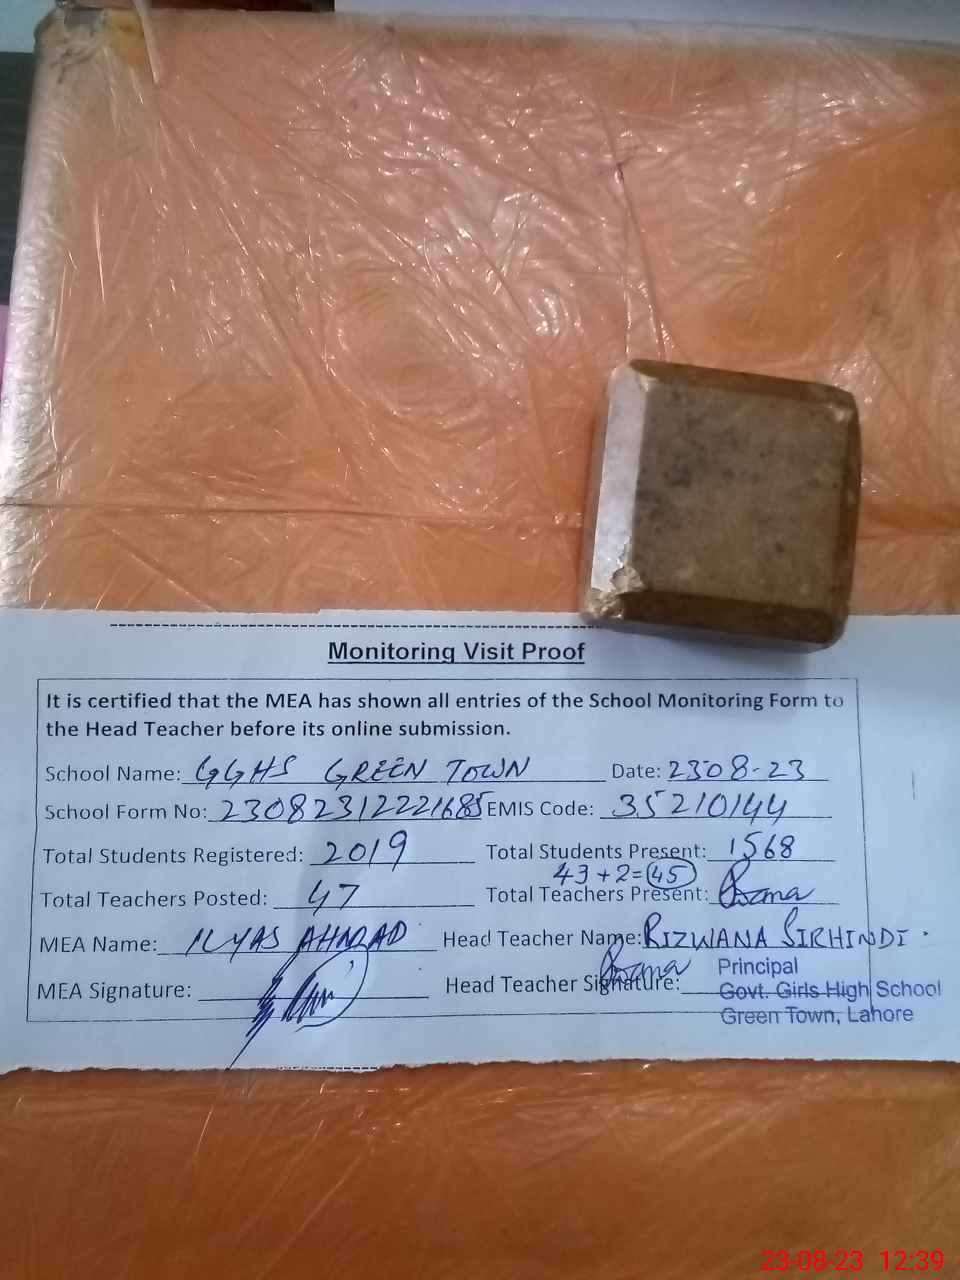 Monitoring Visit Proof
It is certified that the MEA has shown all entries of the School Monitoring Form to
the Head Teacher before its online submission.
School Name: GGHS GREEN TOWN Date: 2308-23
School Form No: 230823122221685 EMIS Code: 35210144
Total Students Registered: 2019 Total Students Present: 1568
43+2=45
Total Teachers Posted: 47 Total Teachers Present:
MEA Name: ILYAS AHMAD Head Teacher Name: RIZWANA SIRHINDI.
MEA Signature: Head Teacher Signature:
Principal
Govt. Girls High School
Green Town, Lahore
23-08-23 12:39